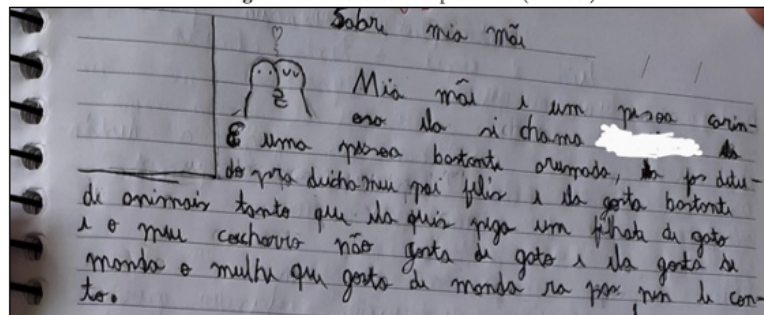 Sobre mia mãi
Mia mãi e um pesoa carin-
eso ela si chama ela
É uma pesoa bastante arumada, ela fas ditu-
do pra deicha meu pai felis e ela gosta bastante
de animais tanto que ela quis pega um filhote de gato
e o meu cachorro não gosta de gato e ela gosta de
manda e mulhe que gosta de manda
to.